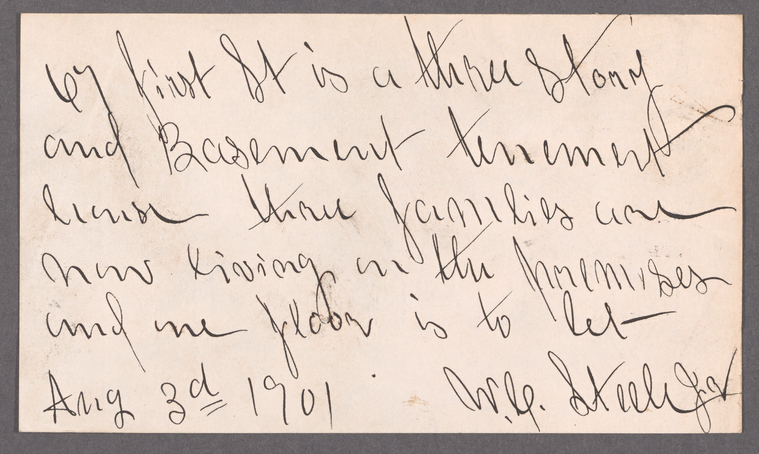 67 first St is a three Story
and Basement tenement
house three families are
now living on the premises
and one floor is to let
Aug 3d 1901 W.C. Steele Jr